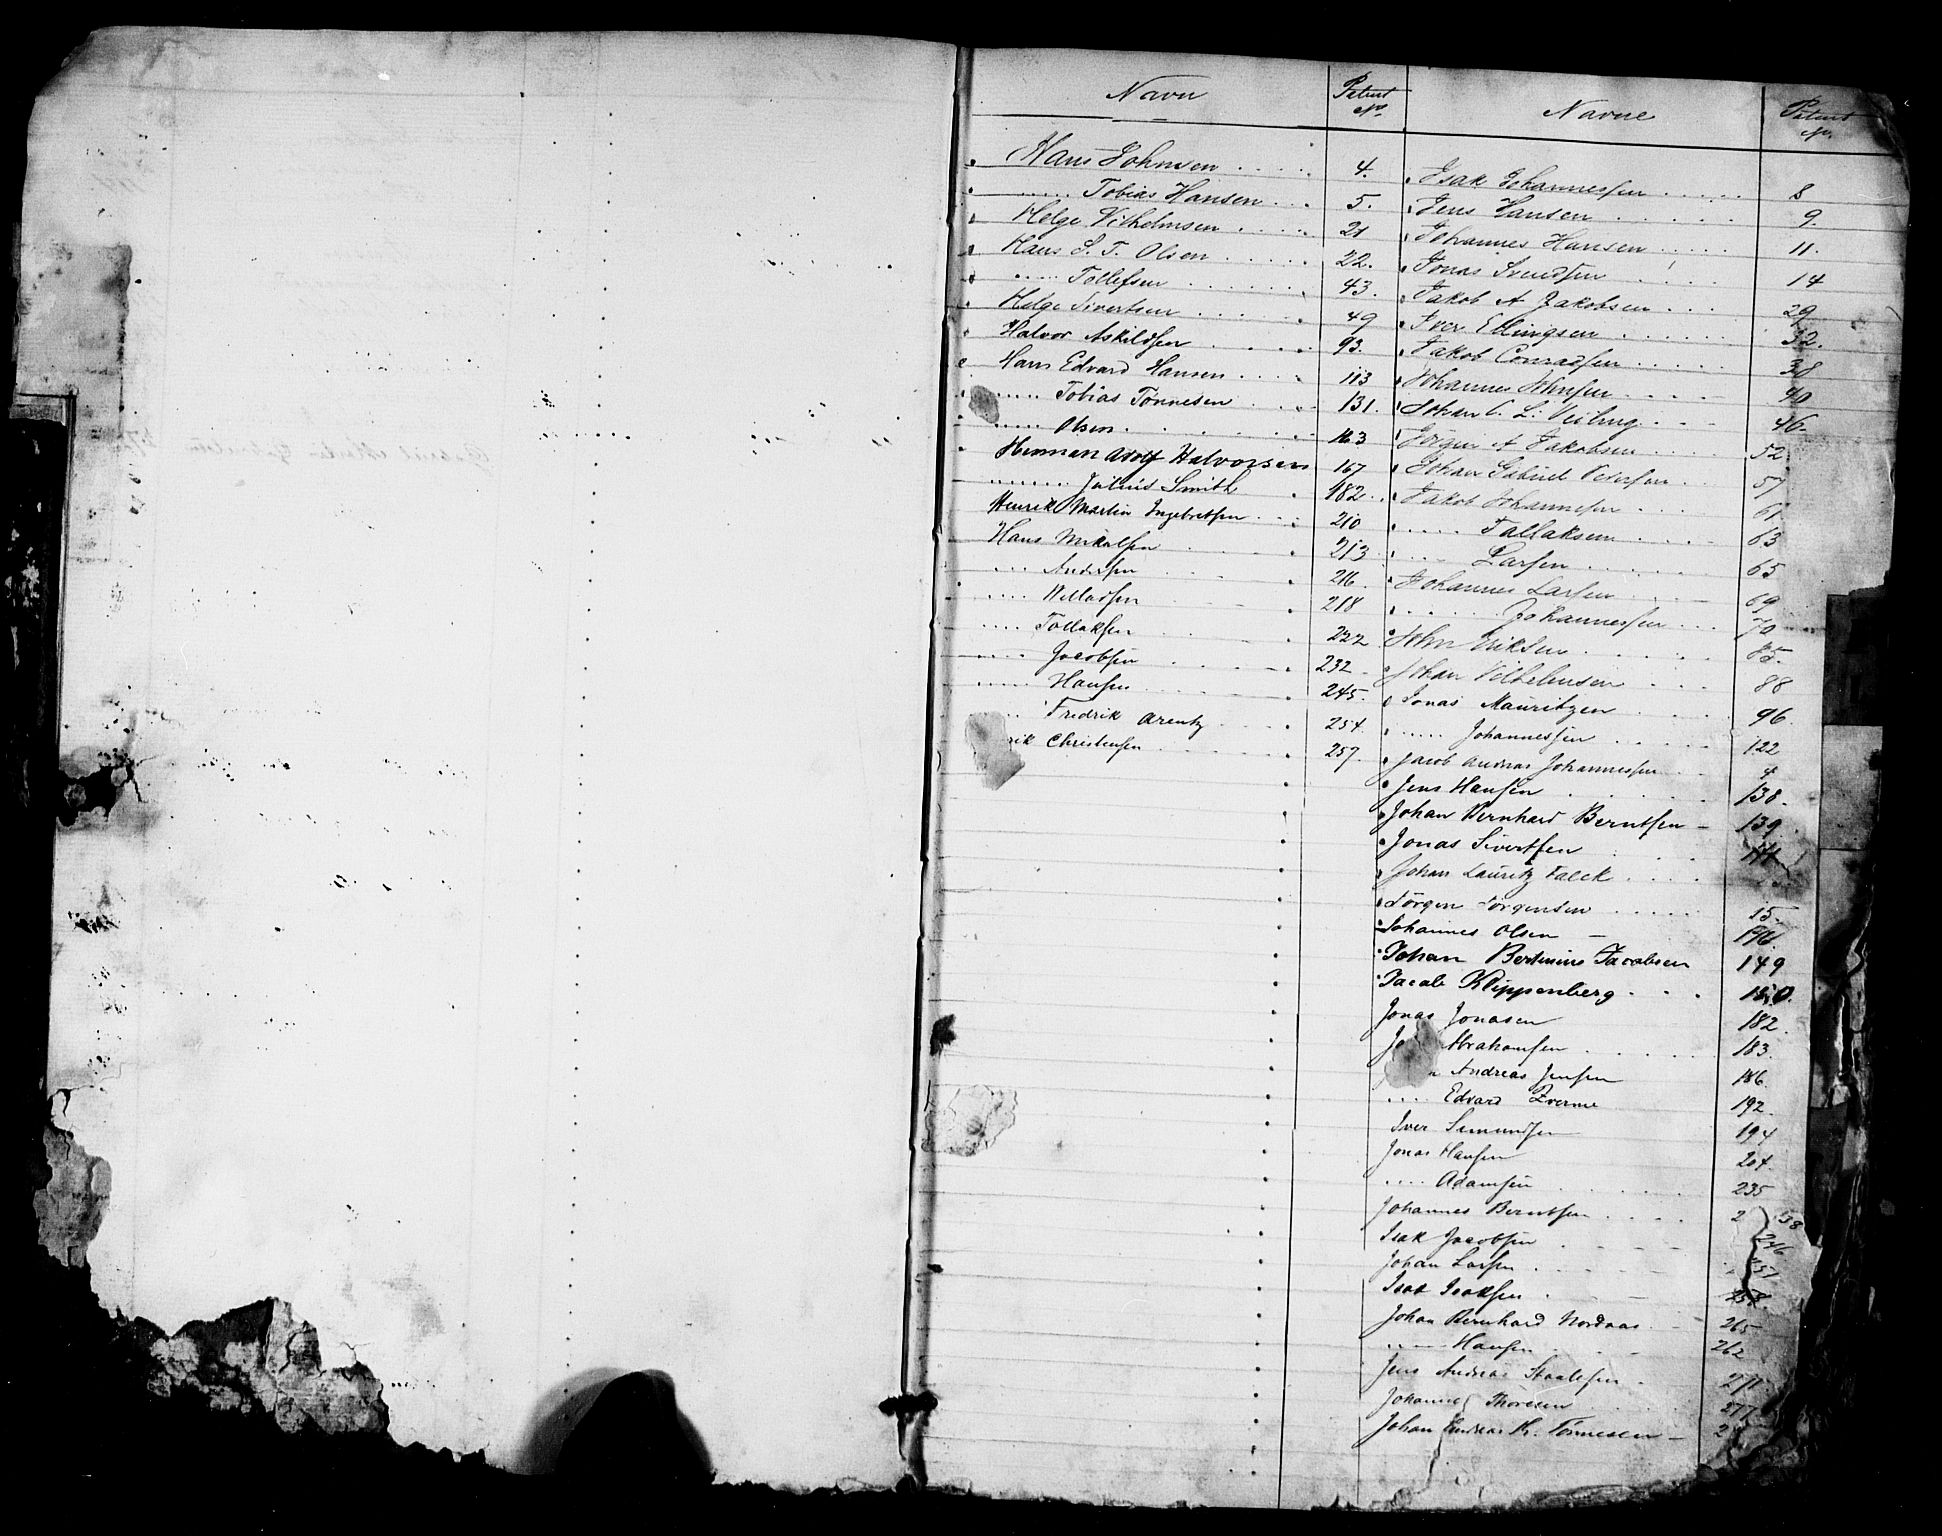 Navn
Patent No.
Hans Johnsen 4.
..... Tobias Hansen 5.
Helge Vilhelmsen 21
Hans S. T. Olsen 22.
..... Tollefsen 43.
Helge Sivertsen 49
Halvor Askildsen 93.
Hans Edvard Hansen 113
..... Tobias Tønnesen 131.
..... Olsen 163
Herman Adolf Halvorsen 167
....... Julius Smith 182
Henrik Martin Ingebretsen 210
Hans Mikalsen 213
... Andersen 216
.... Willadsen 218
.... Tollaksen 222
.... Jacobsen 232
..... Hansen 245.
.. Fredrik Arentz 254.
rik Christensen 257.
Navne
Patent No.
Isak Johannessen 8
Jens Hansen 9.
Johannes Hansen 11.
Jonas Svendsen 14
Jakob A Jakobsen 29
Iver Ellingsen 32.
Jakob Conradsen 38
Johannes Johnsen 40
Johan C. L. 46
Jörgen A Jakobsen 52
Johan Gabriel Petersen 57
Jakob Johannesen 61
..... Tallaksen 63
.... Larsen 65
Johannes Larsen 69
...... Johannessen 70
John Eriksen 85.
Johan Vilhelmsen 88
Jonas Mauritzen 96
..... Johannessen 122
Jacob Andreas Johannessen 4
Jens Hansen 138.
Johan Bernhard Berntsen 139
Jonas Sivertsen
Johan Lauritz Falck
Jörgen Jörgensen 15
Johannes Olsen
Johan Bertinius Jacobsen 149
Jacob Klippenberg 150.
Jonas Jonasen 182
Abrahamsen 183
Andreas Jensen 186
.... Edvard 192
Iver Simundsen 194
Jonas Hansen 204
.... Adamsen 235
Johannes Berntsen 238
Isak Jacobsen 246
Johan Larsen 251
Isak Isaksen 258
Johan Bernhard Nordaas 265
..... Hansen 262
Jens Andreas Staalesen 271
Johannes Thoresen 277
Johan Andreas Kr. Tönnesen 2